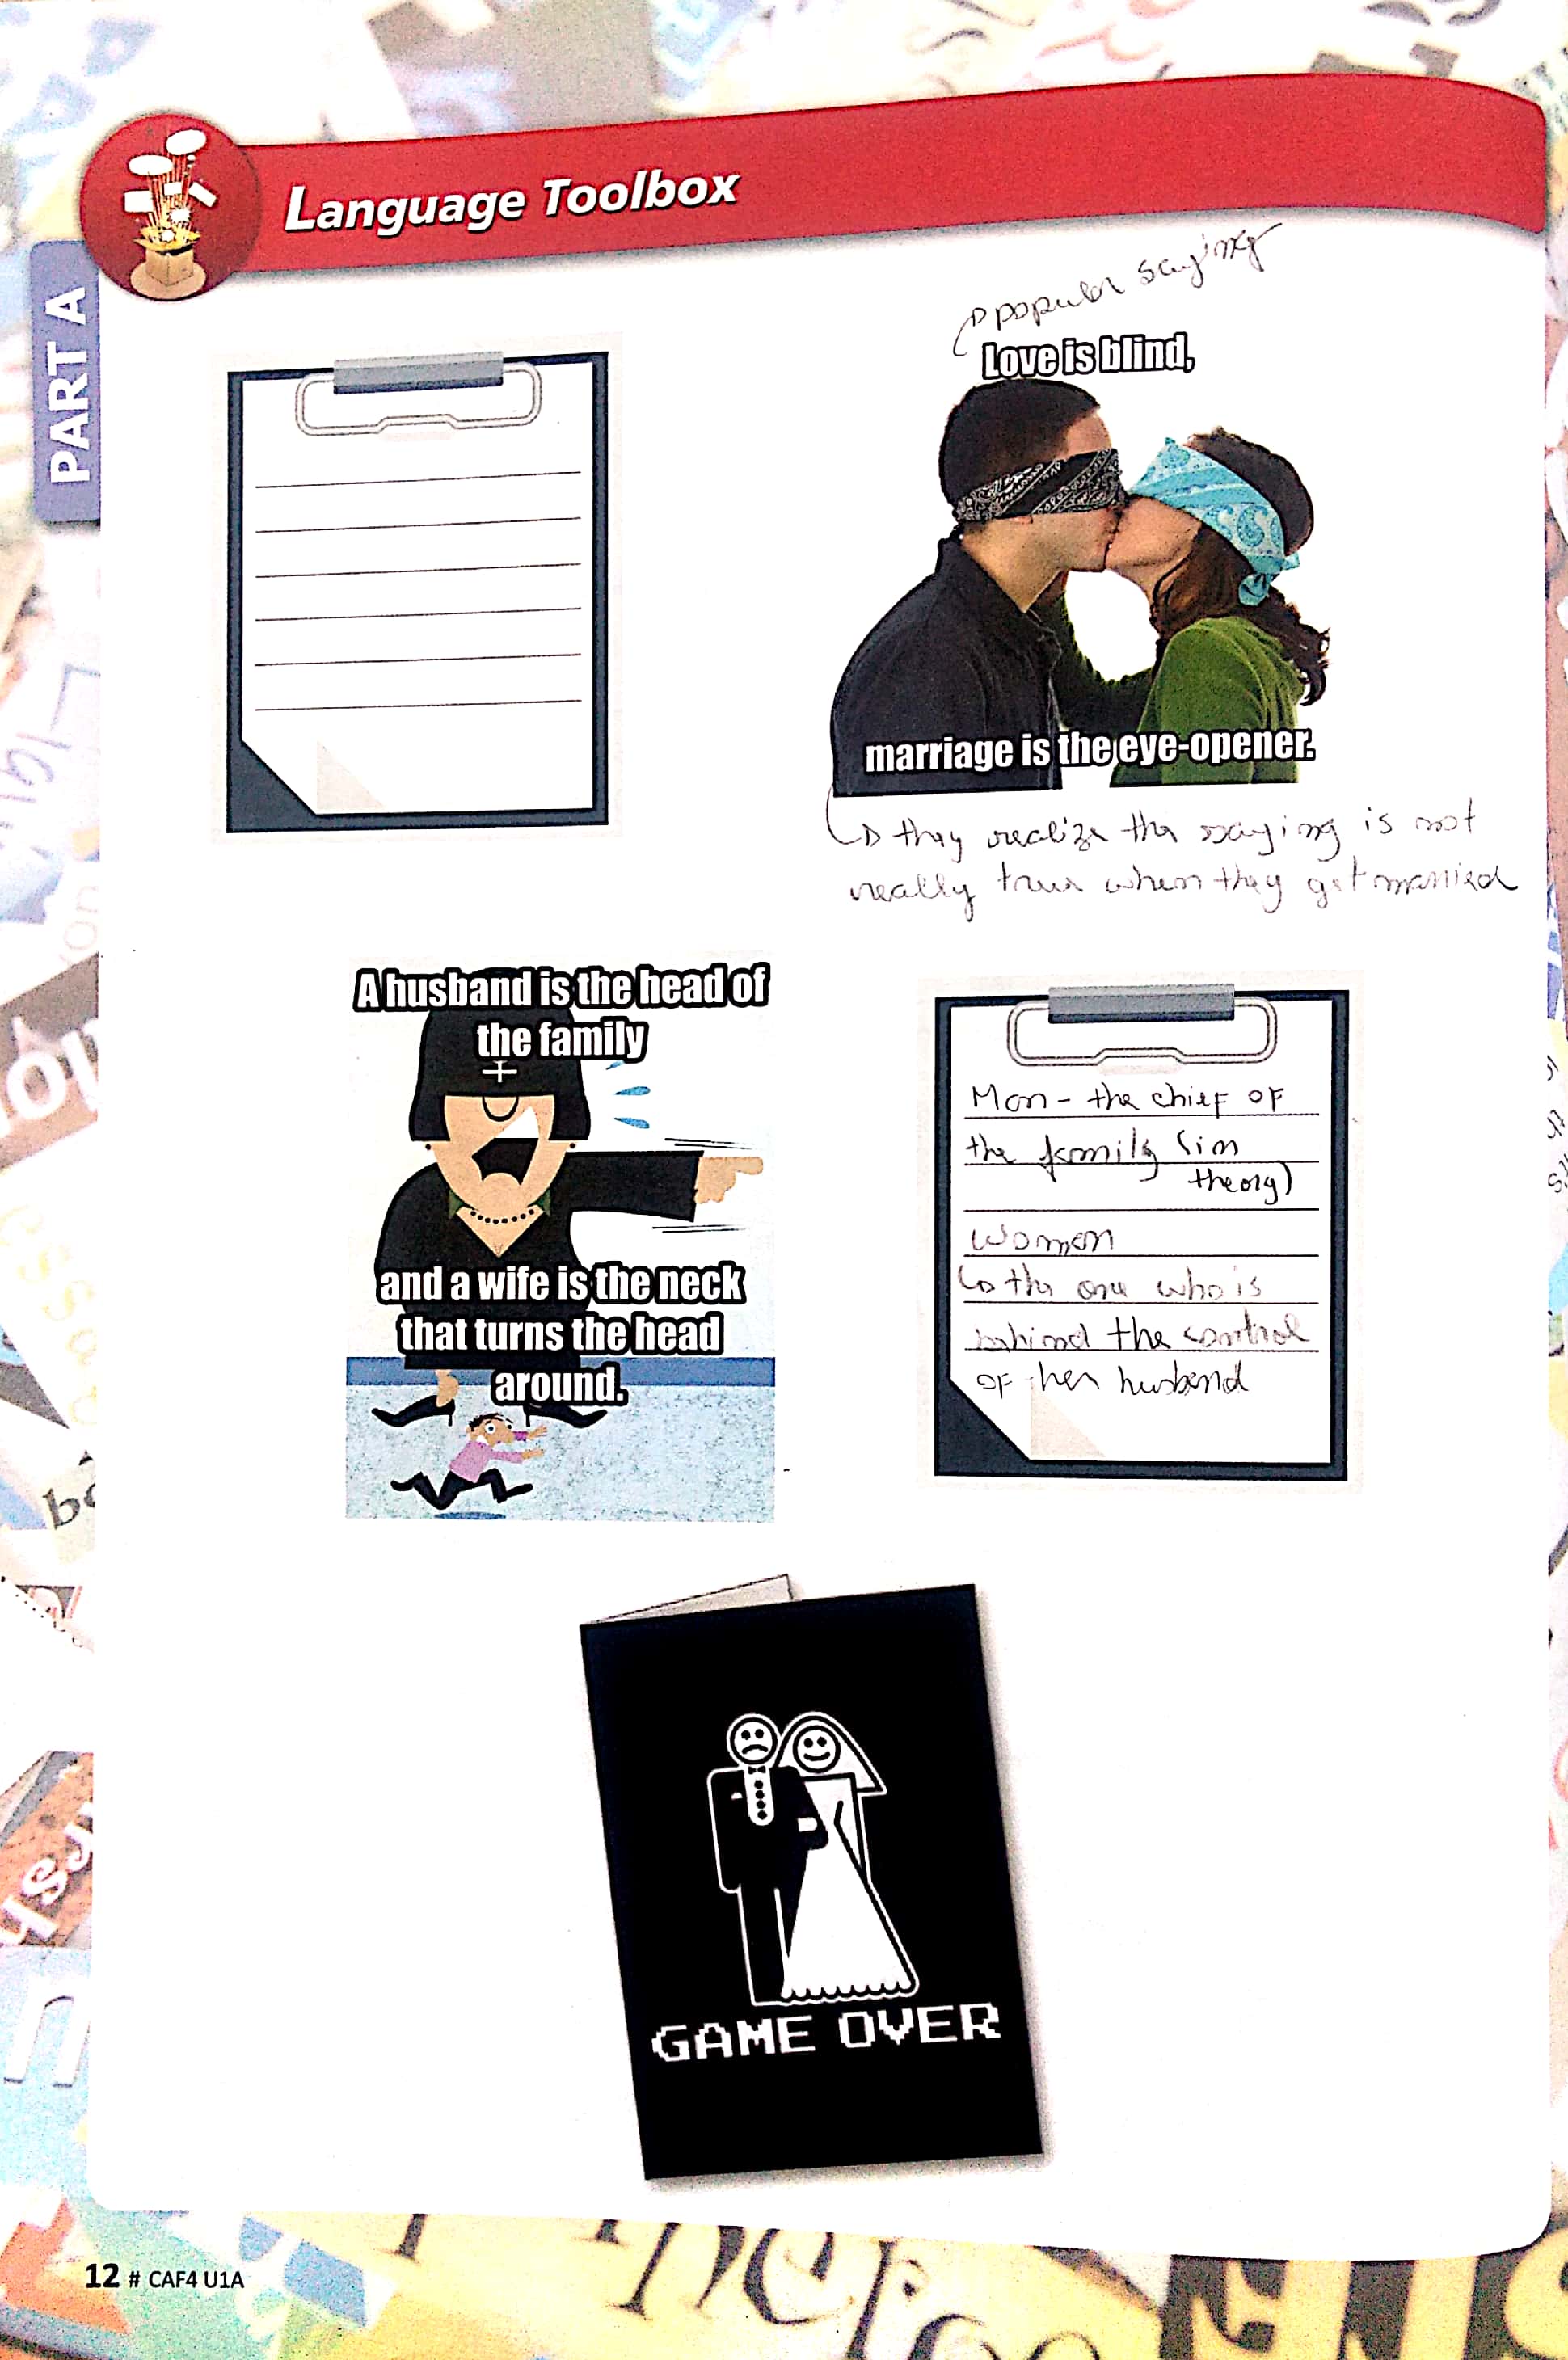 Language Toolbox
PART A
popular saying
Love is blind,
marriage is the eye-opener.
they realize the saying is not
really true when they get married
A husband is the head of
the family
and a wife is the neck
that turns the head
around.
Man - the chief of
the family (in
theory)
women
the one who is
behind the control
of her husband
GAME OVER
12 # CAF4 U1A